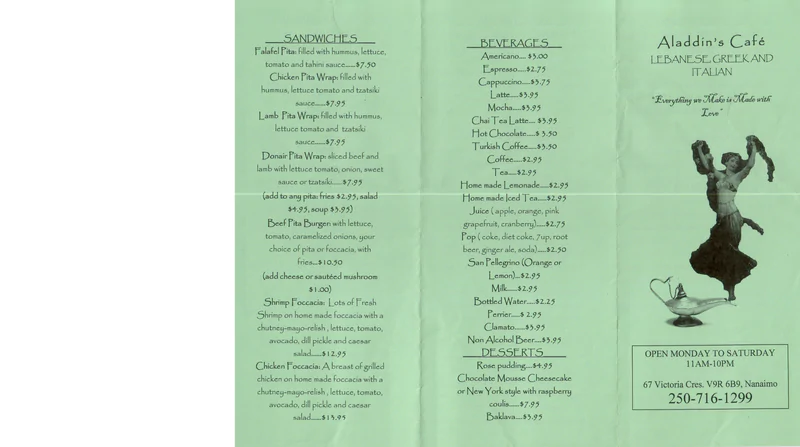 SANDWICHES
Falafel Pita: filled with hummus, lettuce,
tomato and tahini sauce......$7.50
Chicken Pita Wrap: filled with
hummus, lettuce tomato and tzatsiki
sauce......$7.95
Lamb Pita Wrap: filled with hummus,
lettuce tomato and tzatsiki
sauce......$7.95
Donair Pita Wrap: sliced beef and
lamb with lettuce tomato, onion, sweet
sauce or tzatsiki......$7.95
(add to any pita: fries $2.95, salad
$4.95, soup $3.95)
Beef Pita Burgen with lettuce,
tomato, caramelized onions, your
choice of pita or foccacia, with
fries...$10.50
(add cheese or sautéed mushroom
$1.00)
Shrimp Foccacia: Lots of Fresh
Shrimp on home made foccacia with a
chutney-mayo-relish , lettuce, tomato,
avocado, dill pickle and caesar
salad......$12.95
Chicken Foccacia: A breast of grilled
chicken on home made foccacia with a
chutney-mayo-relish , lettuce, tomato,
avocado, dill pickle and caesar
salad......$13.95
BEVERAGES
Americano.... $3.00
Espresso.....$2.75
Cappuccino.....$3.75
Latte.....$3.95
Mocha.....$3.95
Chai Tea Latte.... $3.95
Hot Chocolate.....$ 3.50
Turkish Coffee.....$3.50
Coffee.....$2.95
Tea.....$2.95
Home made Lemonade.....$2.95
Home made Iced Tea.....$2.95
Juice ( apple, orange, pink
grapefruit, cranberry).....$2.75
Pop ( coke, diet coke, 7up, root
beer, ginger ale, soda).....$2.50
San Pellegrino (Orange or
Lemon)...$2.95
Milk.....$2.95
Bottled Water.....$2.25
Perrier.....$ 2.95
Clamato.....$3.95
Non Alcohol Beer.....$3.95
DESSERTS
Rose pudding.....$4.95
Chocolate Mousse Cheesecake
or New York style with raspberry
coulis......$7.95
Baklava.....$3.95
Aladdin's Café
LEBANESE, GREEK AND
ITALIAN
"Everything we Make is Made with
Love"
OPEN MONDAY TO SATURDAY
11AM-10PM
67 Victoria Cres. V9R 6B9, Nanaimo
250-716-1299